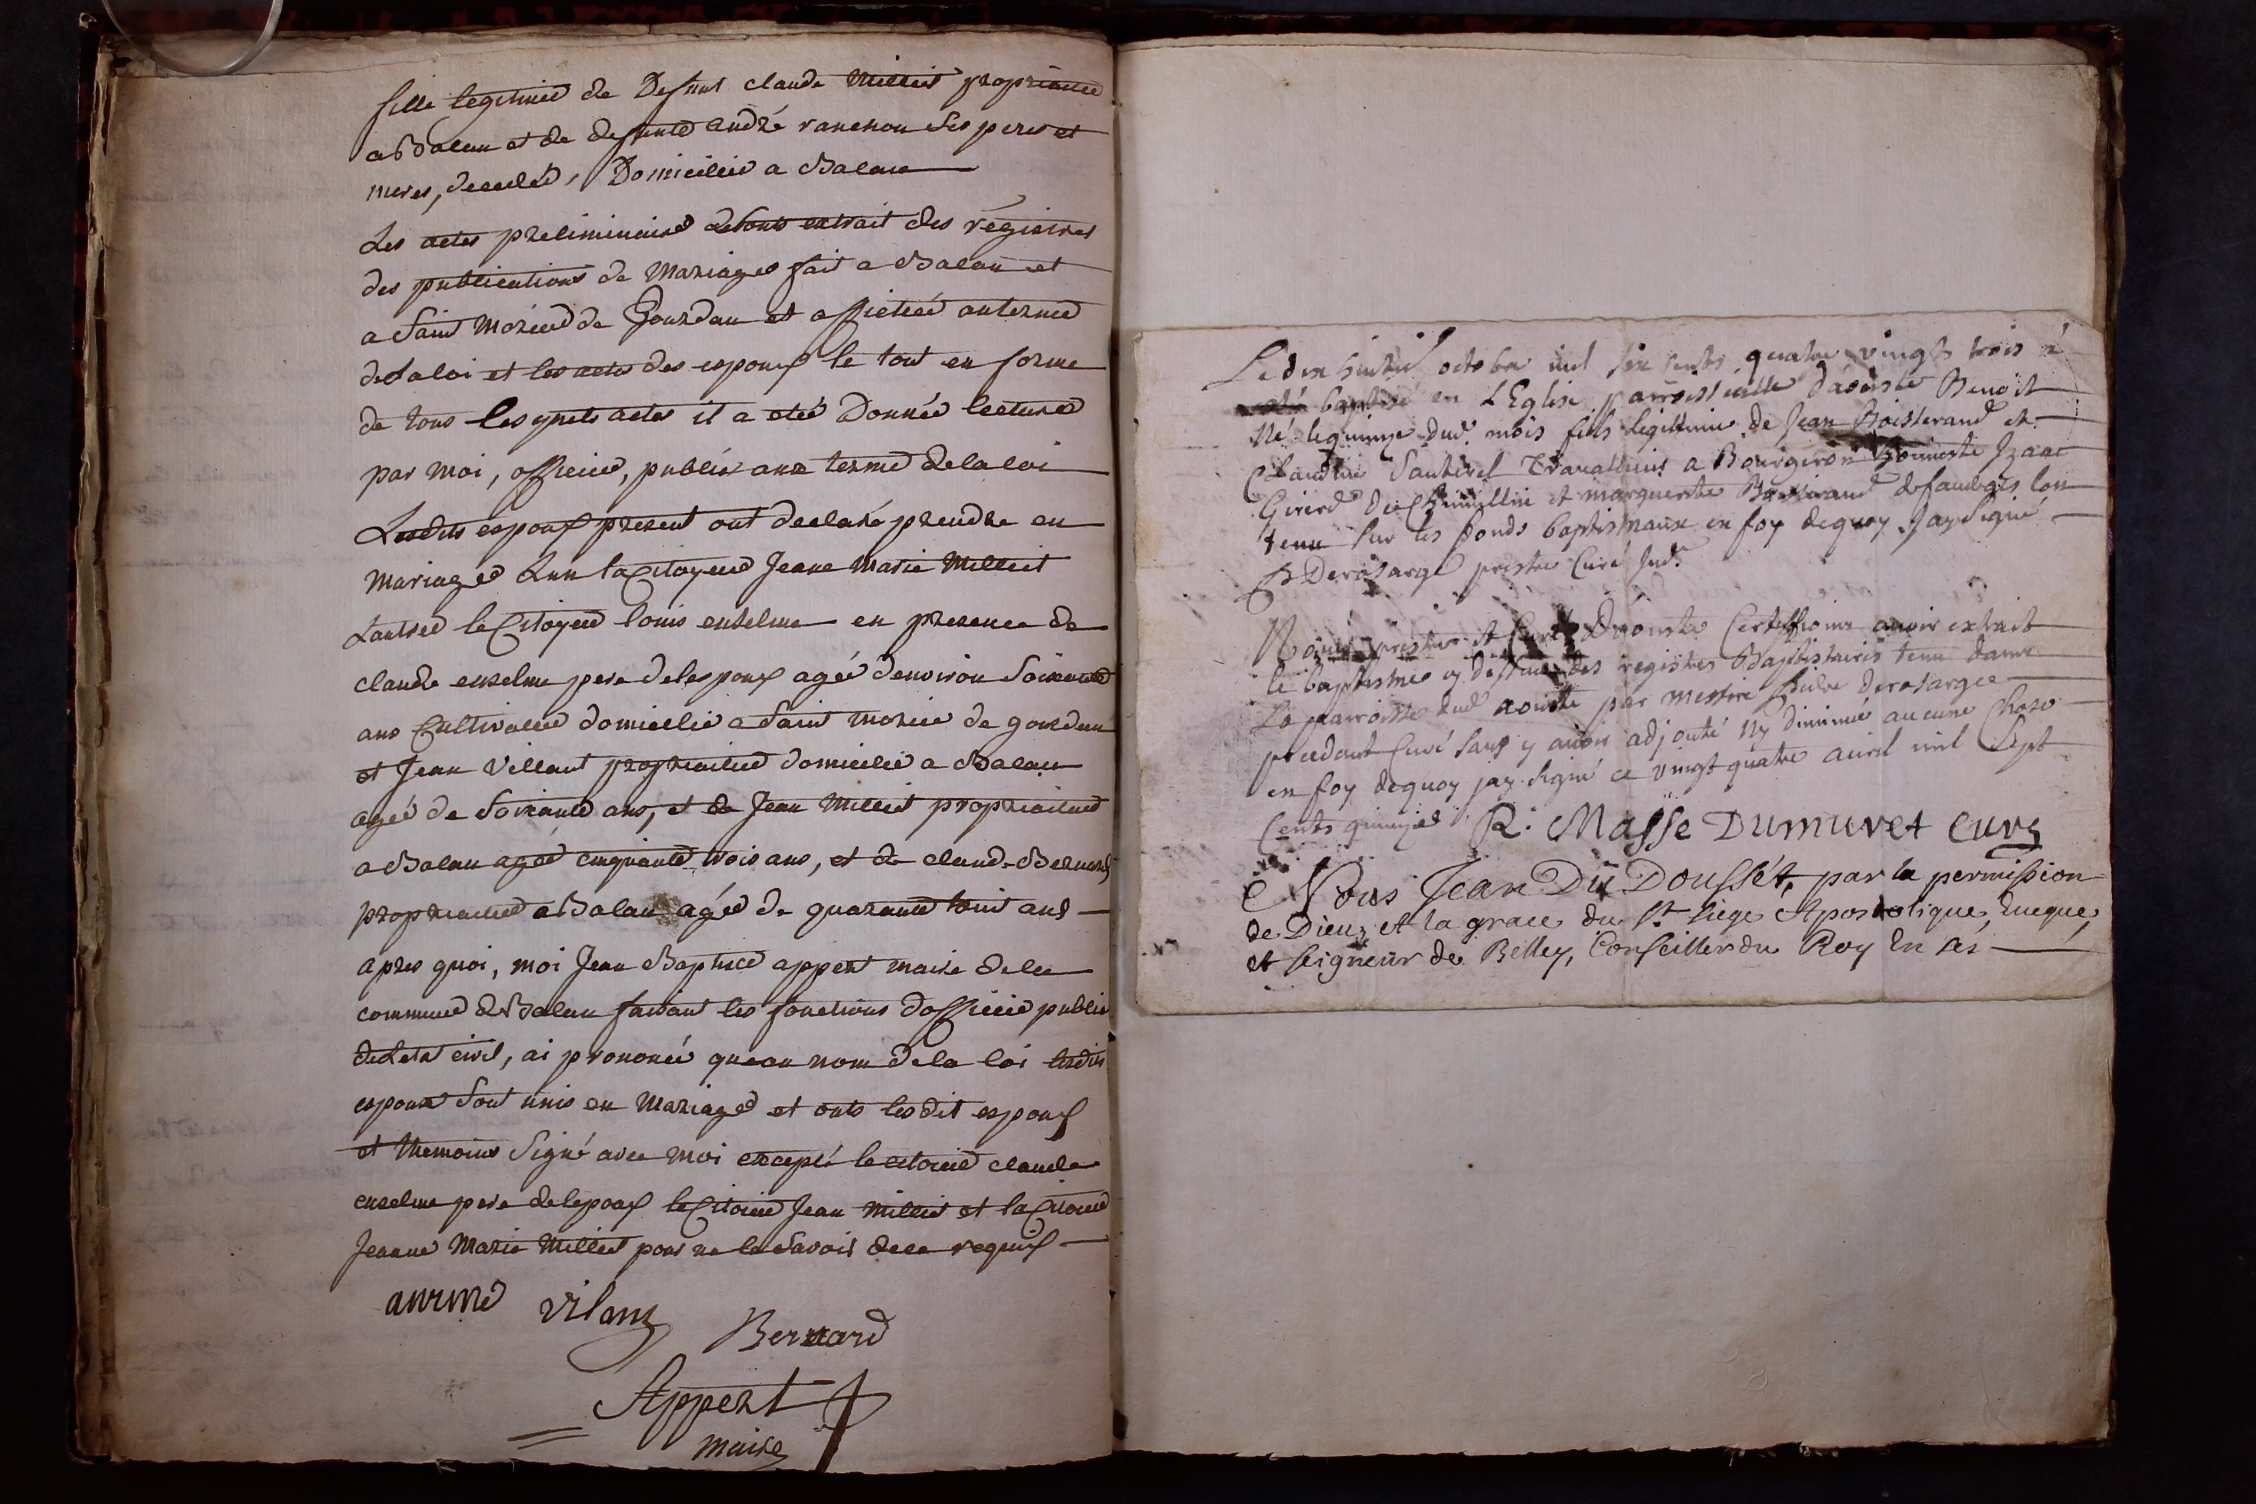 fille legitimee de Defunt claude Milliet propriaitee
a Balan et de defunte andré ranchon Ses peres et
meres, decedes, Domiciliee a Balan
Les actes preliminaires de sont extrait des régistres
des publications de Mariages fait a Balan et
a Saint Moriced de Gourdan et affichéé au termed
de la loi et les actes des espoux le tout en forme
de tous les quels actes il a étéé Donnée lectured
par moi, officier, publié aux termed de la loi
Lesdits espoux present ont declaré prendre en
Mariaged Lun la Citoyene Jeane Marie Milliet
Lautred le Citoyen louis enselme en presence de
claude enselme pere de lespoux agéé denviron Soixante
ans Cultivateur domicilié a Saint Morice de gourdan
et Jean Villant propriaitee domicilié a Balan
agéé de Soixante ans, et de Jean Milliet propriaitee
a Balan agéé cinquante trois ans, et de claude Bernard
propriaitee a Balan agéé de quarante huit ans
apres quoi, moi Jean Baptiste appert maire de la
commune de Balan faisant les fonctions dofficié public
de Letat civil, ai prononcé quau nom de la loi lesdits
espoux Sont unis en Mariaged et onts lesdit espoux
et themoins Signé avec moi excepté le citoien claude
enselme pere de lepoux le Citoien Jean Milliet et la Citoiene
Jeanne Marie Milliet pour ne le Savoir de ce requis
Vilant
Bernard
Appert
maire
Le dix huitie octobre mil six cents quatre vingts trois à
esté baptisé en L'Eglise parroissialle d'aouste Benoit
Né le quinze dud. mois fils legittime de Jean Boisserand et
Claudine travailleurs a Bourgeron Izaac
Girerd de et marguerite Boisserand lon
tenu sur les fonds baptismaux en foy dequoy Jay Signé
Derosarge prestre Curé Sud.
prestre et Curé Daouste Certiffions avoir extrait
le baptisme cy dessus des registres Baptistaires tenu dans
La parroisse dud aouste par messire derosarge
precedant Curé sans y avoir adjouté Ny diminué aucune Chose
en foy dequoy jay signé ce vingt quatre avril mil Sept
Cents quinze R. Masse Dumuret Curé
Nous Jean Du Doussét, par la permission
de Dieu, et la grace du St. siege Apostolique, Eueque,
et seigneur de Belley, Conseiller du Roy En ses